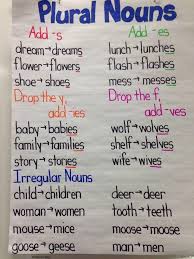 Plural Nouns
Add -s
dream→dreams
flower→flowers
shoe→shoes
Add -es
lunch→lunches
flash→flashes
mess→messes
Drop the y,
add -ies
baby→babies
family→families
story→stories
Drop the f,
add -ves
wolf→wolves
shelf→shelves
wife→wives
Irregular Nouns
child→children
woman→women
mouse→mice
goose→geese
deer→deer
tooth→teeth
moose→moose
man→men